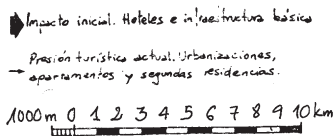 Impacto inicial. Hoteles e infraestructura básica
Presión turística actual. Urbanizaciones,
apartamentos y segundas residencias.
1000m 0 1 2 3 4 5 6 7 8 9 10 km